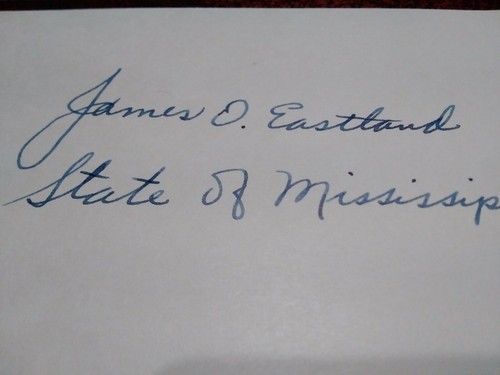 James O. Eastland
State of Mississip